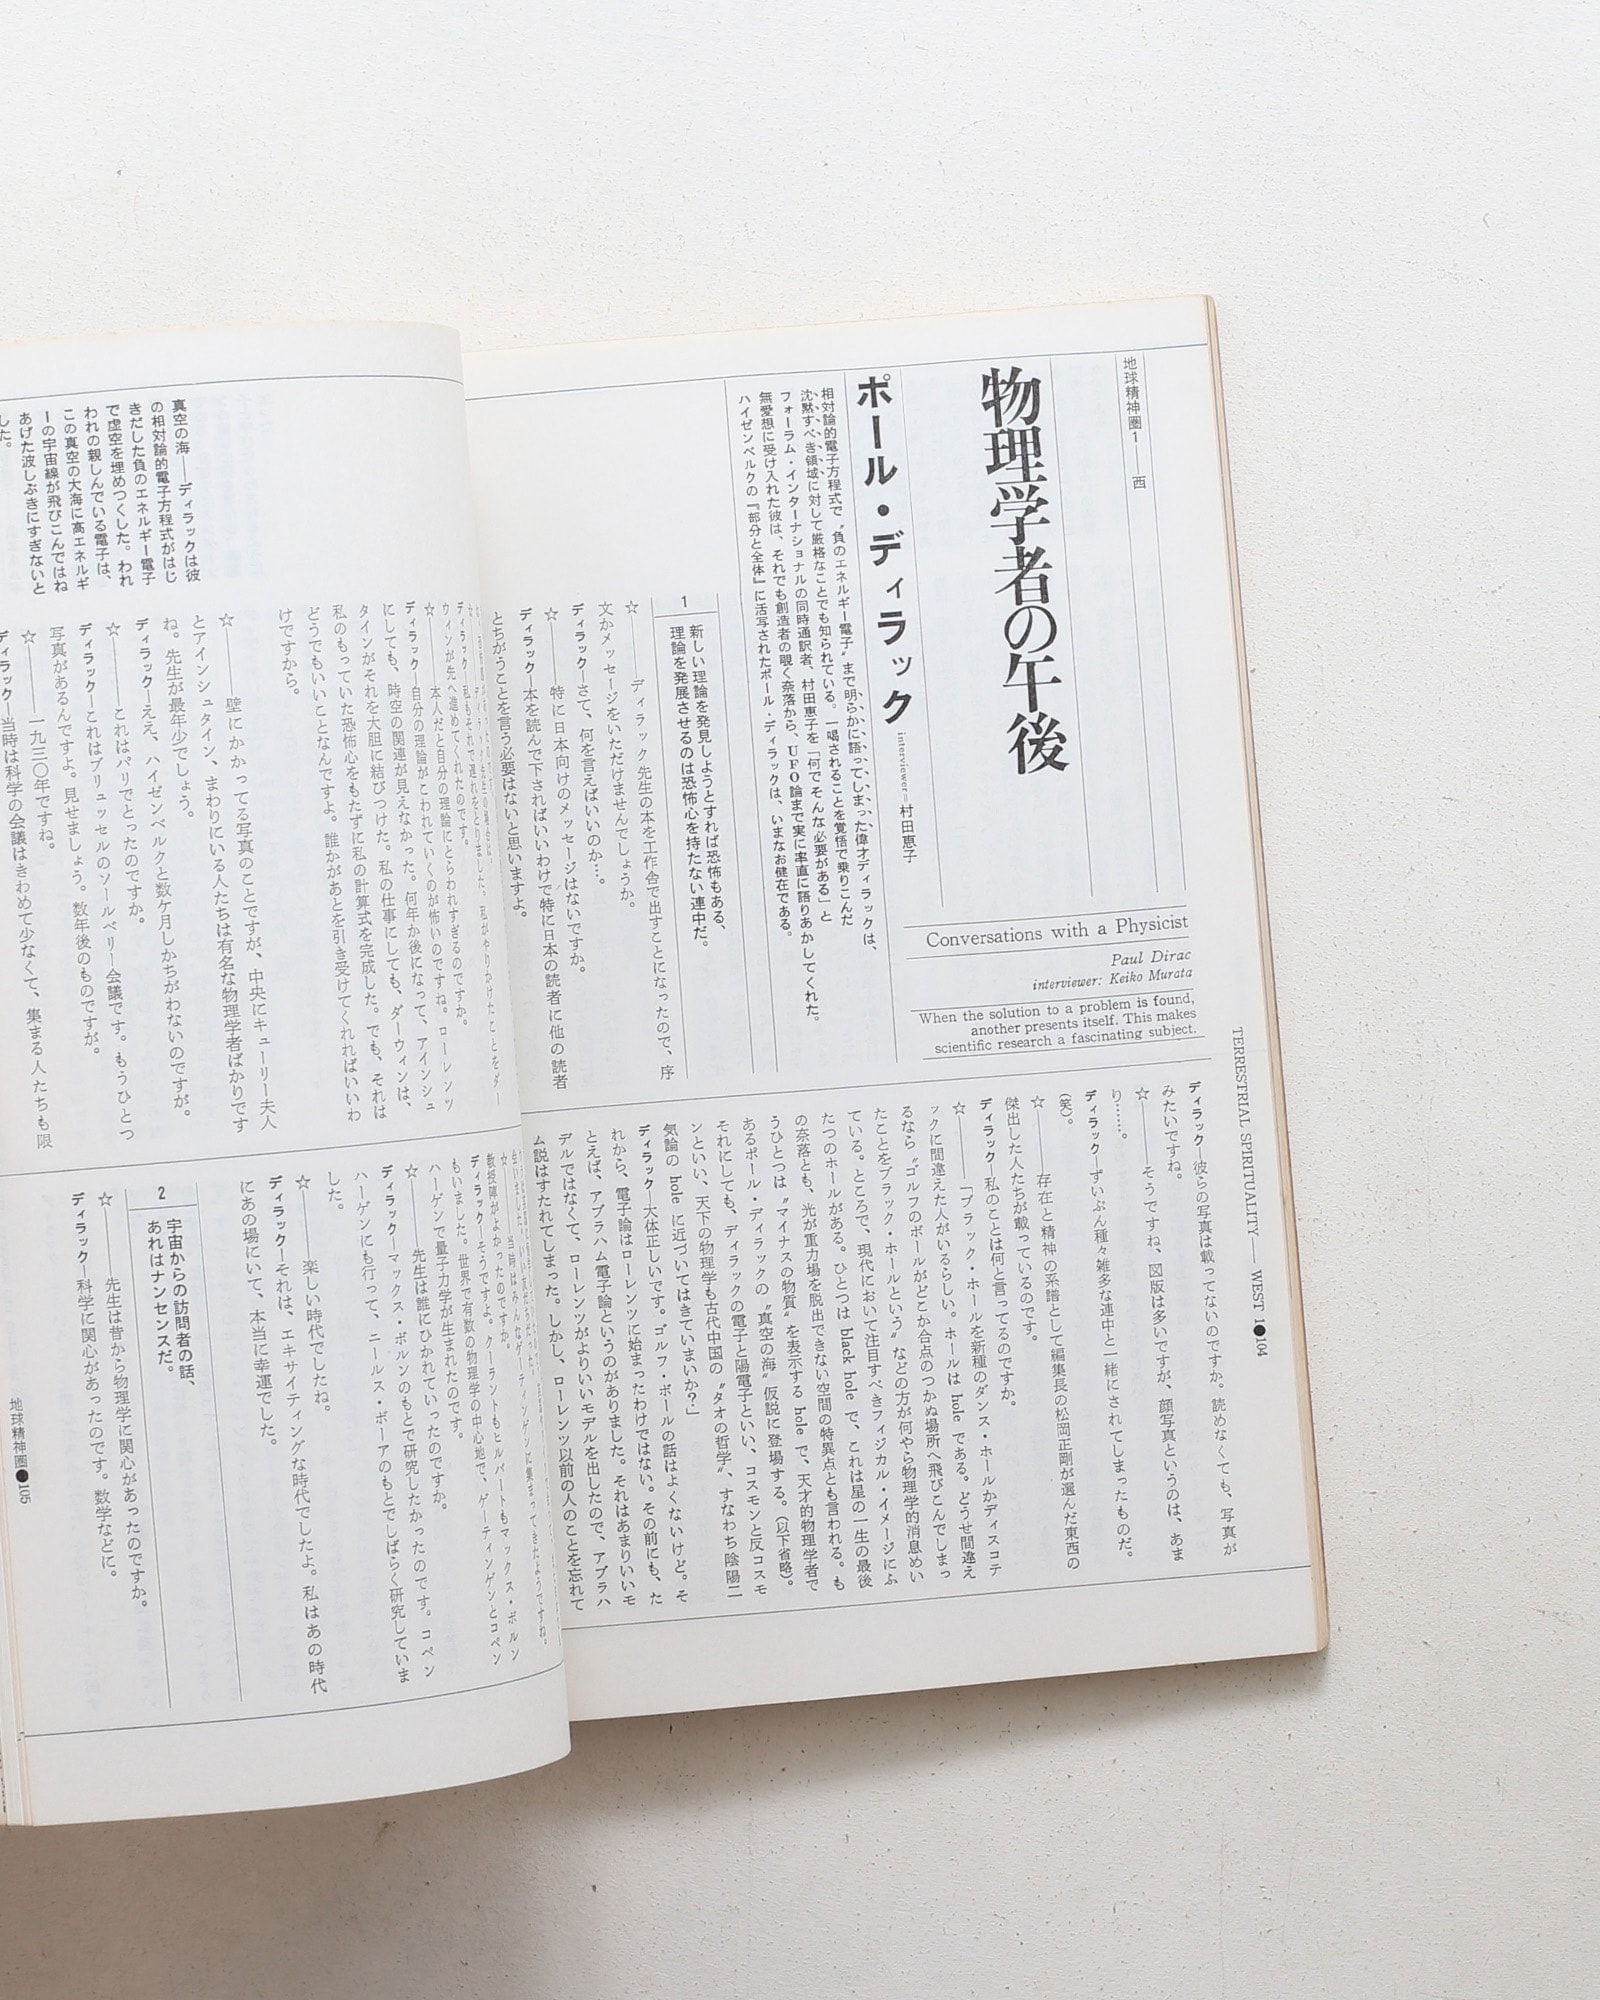 地球精神圏1——西
物理学者の午後
ポール・ディラック
interviewer=村田恵子
相対論的電子方程式で〝負のエネルギー電子〟まで明らかに語ってしまった偉才ディラックは、
沈黙すべき領域に対して厳格なことでも知られている。一喝されることを覚悟で乗りこんだ
フォーラム・インターナショナルの同時通訳者、村田恵子を「何でそんな必要がある」と
無愛想に受け入れた彼は、それでも創造者の覗く奈落から、UFO論まで実に率直に語りあかしてくれた。
ハイゼンベルクの『部分と全体』に活写されたポール・ディラックは、いまなお健在である。
Conversations with a Physicist
Paul Dirac
interviewer: Keiko Murata
When the solution to a problem is found,
another presents itself. This makes
scientific research a fascinating subject.
1
新しい理論を発見しようとすれば恐怖もある、
理論を発展させるのは恐怖心を持たない連中だ。
☆——ディラック先生の本を工作舎で出すことになったので、序
文かメッセージをいただけませんでしょうか。
ディラック—さて、何を言えばいいのか…。
☆——特に日本向けのメッセージはないですか。
ディラック—本を読んで下さればいいわけで特に日本の読者に他の読者
とちがうことを言う必要はないと思いますよ。
TERRESTRIAL SPIRITUALITY — WEST 1●104
ディラック—彼らの写真は載ってないのですか。読めなくても、写真が
みたいですね。
☆——そうですね、図版は多いですが、顔写真というのは、あま
り……。
ディラック—ずいぶん種々雑多な連中と一緒にされてしまったものだ。
(笑)。
☆——存在と精神の系譜として編集長の松岡正剛が選んだ東西の
傑出した人たちが載っているのです。
ディラック—私のことは何と言ってるのですか。
☆——「ブラック・ホールを新種のダンス・ホールかディスコテ
ックに間違えた人がいるらしい。ホールは hole である。どうせ間違え
るなら〝ゴルフのボールがどこか合点のつかぬ場所へ飛びこんでしまっ
たことをブラック・ホールという〟などの方が何やら物理学的消息めい
ている。ところで、現代において注目すべきフィジカル・イメージにふ
たつのホールがある。ひとつは black hole で、これは星の一生の最後
の奈落とも、光が重力場を脱出できない空間の特異点とも言われる。も
うひとつは〝マイナスの物質〟を表示する hole で、天才的物理学者で
あるポール・ディラックの〝真空の海〟仮説に登場する。(以下省略)。
それにしても、ディラックの電子と陽電子といい、コスモンと反コスモ
ンといい、天下の物理学も古代中国の〝タオの哲学〟、すなわち陰陽二
気論の hole に近づいてはきていまいか?」
ディラック—大体正しいです。ゴルフ・ボールの話はよくないけど。そ
れから、電子論はローレンツに始まったわけではない。その前にも、た
とえば、アブラハム電子論というのがありました。それはあまりいいモ
デルではなくて、ローレンツがよりいいモデルを出したので、アブラハ
ム説はすたれてしまった。しかし、ローレンツ以前の人のことを忘れて
真空の海——ディラックは彼
の相対論的電子方程式がはじ
きだした負のエネルギー電子
で虚空を埋めつくした。われ
われの親しんでいる電子は、
この真空の大海に高エネルギ
ーの宇宙線が飛びこんではね
あげた波しぶきにすぎないと
した。
ディラック—私もそれで遅れをとりました。私がやりかけたことをダー
ウィンが先へ進めてくれたのです。
☆——本人だと自分の理論にとらわれすぎるのですか。
ディラック—自分の理論がこわれていくのが怖いのですね。ローレンツ
にしても、時空の関連が見えなかった。何年か後になって、アインシュ
タインがそれを大胆に結びつけた。私の仕事にしても、ダーウィンは、
私のもっていた恐怖心をもたずに私の計算式を完成した。でも、それは
どうでもいいことなんですよ。誰かがあとを引き受けてくれればいいわ
けですから。
☆——壁にかかってる写真のことですが、中央にキューリー夫人
とアインシュタイン、まわりにいる人たちは有名な物理学者ばかりです
ね。先生が最年少でしょう。
ディラック—ええ、ハイゼンベルクと数ケ月しかちがわないのですが。
☆——これはパリでとったのですか。
ディラック—これはブリュッセルのソールベリー会議です。もうひとつ
写真があるんですよ。見せましょう。数年後のものですが。
☆——一九三〇年ですね。
ディラック—当時は科学の会議はきわめて少なくて、集まる人たちも限
☆——当時はみんなゲーティンゲンに集まってきたようですね。
教授陣がよかったのですか。
ディラック—そうですよ。クーラントもヒルバートもマックス・ボルン
もいました。世界で有数の物理学の中心地で、ゲーティンゲンとコペン
ハーゲンで量子力学が生まれたのです。
☆——先生は誰にひかれていったのですか。
ディラック—マックス・ボルンのもとで研究したかったのです。コペン
ハーゲンにも行って、ニールス・ボーアのもとでしばらく研究していま
した。
☆——楽しい時代でしたね。
ディラック—それは、エキサイティングな時代でしたよ。私はあの時代
にあの場にいて、本当に幸運でした。
2
宇宙からの訪問者の話、
あれはナンセンスだ。
☆——先生は昔から物理学に関心があったのですか。
ディラック—科学に関心があったのです。数学などに。
地球精神圏●105